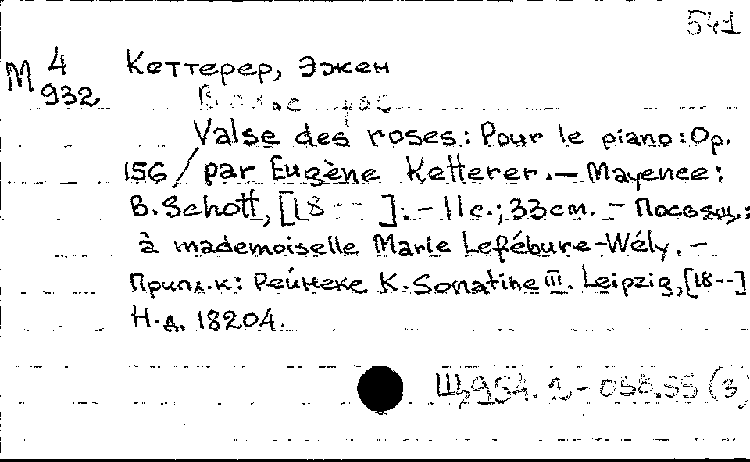 541
М 4 Кеттерер, Эжен
932
Valse des roses: Pour le piano: Op.
156 / par Eugène Ketterer. — Mayence:
B. Schott, [18 -- ]. - 11 с.; 33 см. - Посвящ.:
à mademoiselle Marie Lefébure-Wély. -
Припл. к: Рейнеке К. Sonatine III. Leipzig, [18--]
Н.д. 18204.
Щ954.2-058.55 (3)